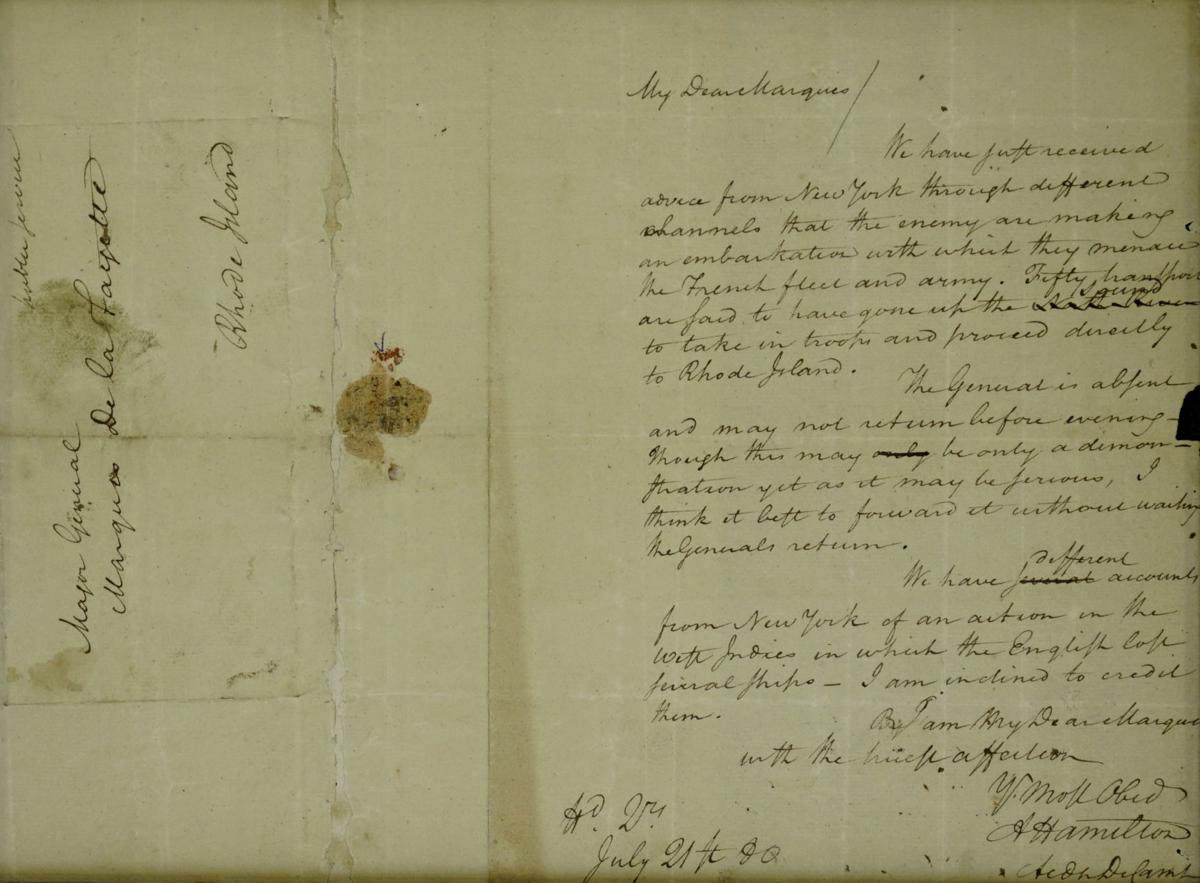 public service
Major General
Marquis De la Fayette
Rhode Island
My Dear Marquis /
We have just received
advice from New York through different
channels that the enemy are making
an embarkation with which they menace
the French fleet and army. Fifty transports
Sound
are said to have gone up the North River
to take in troops and proceed directly
to Rhode Island.
The General is absent
and may not return before evening –
though this may only be only a demon–
stration yet as it may be serious, I
think it best to forward it without waiting
the Generals return.
different
We have several accounts
from New York of an action in the
West Indies in which the English lost
several ships – I am inclined to credit
them.
I am My Dear Marquis
with the truest affection
Yr. Most Obed
A Hamilton
Aide De Camp
Hd. Qrs
July 21st 80